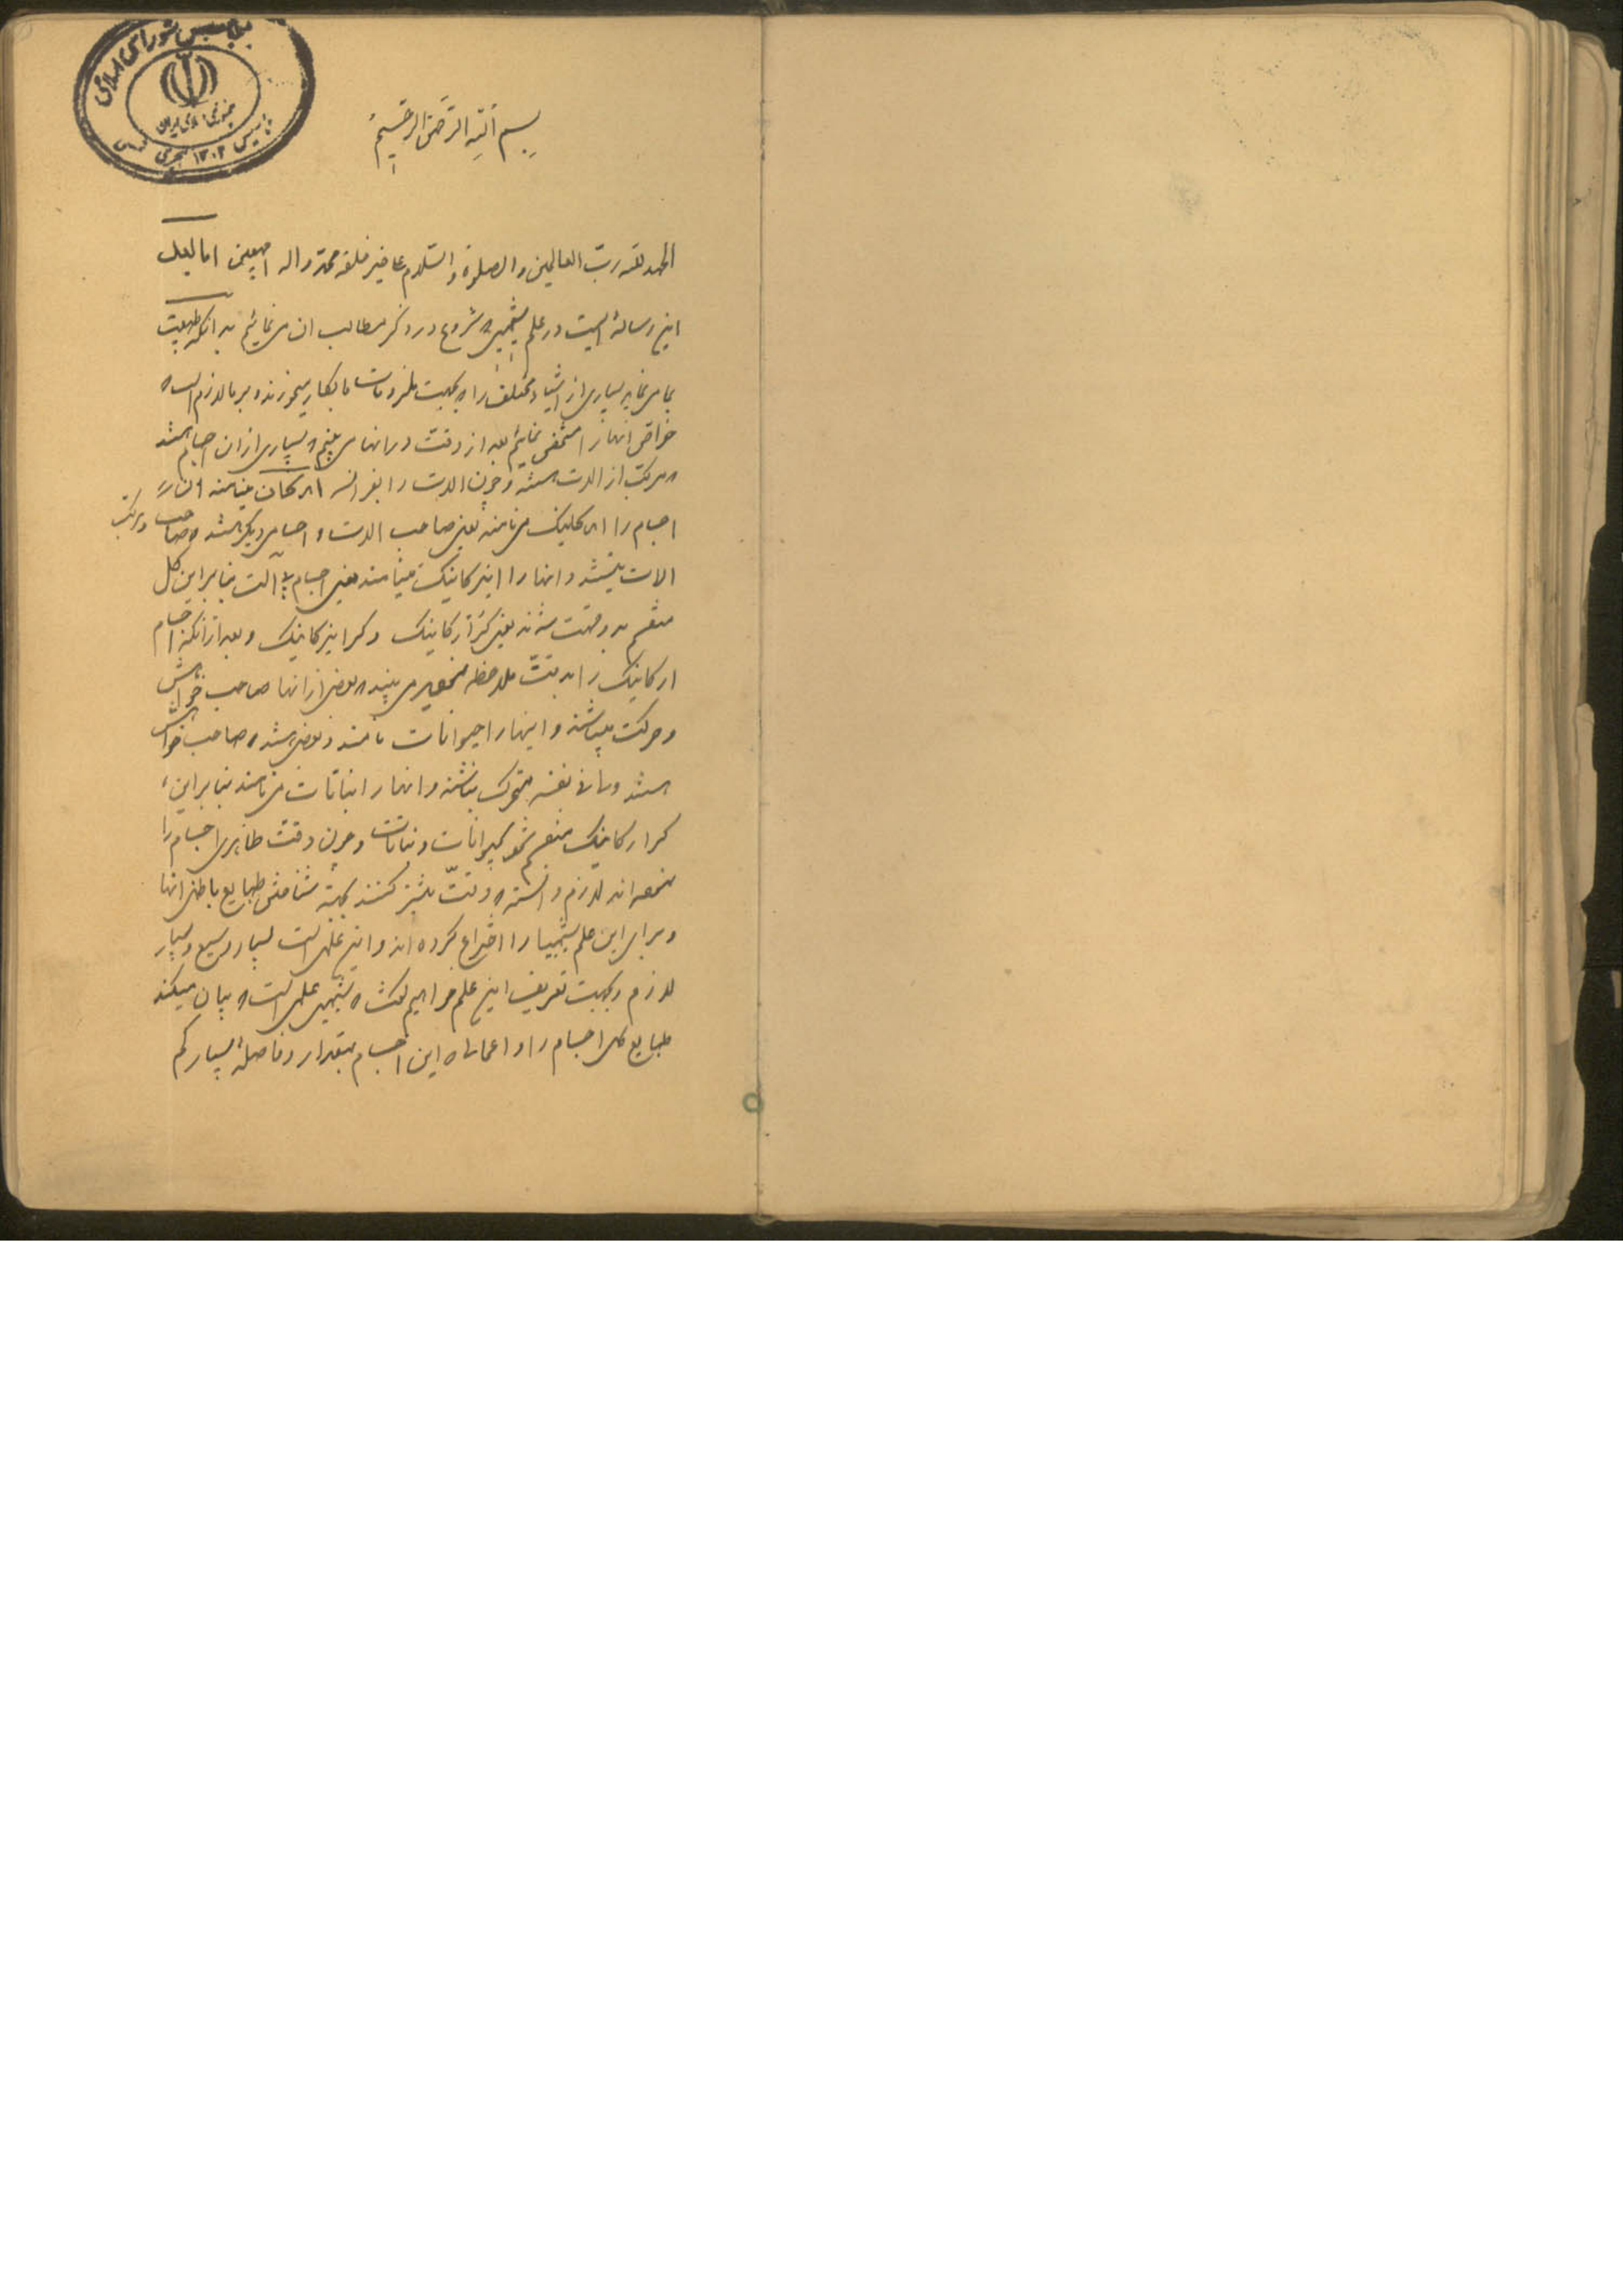 بسم الله الرحمن الرحیم
الحمد لله رب العالمین و الصلوة و السلام علی خیر خلقه محمد و اله اجمعین اما بعد
این رساله ایست در علم شیمی که شروع در ذکر مطالب ان می نمائیم بدانکه طبیعت
بما می نماید بسیاری از اشیاء مختلفه را که بجهت ملزومات ما بکار میخورند و بر ما لازم است که
خواص انها را مشخص نمائیم بعد از دقت در انها می بینیم که بسیاری از ان اجسام هستند
که مرکب از الات هستند و چون الات را بفرانسه ارکان مینامند ان
اجسام را ارکانیک می نامند یعنی صاحب الات و اجسام دیگر هستند که صاحب و مرکب
الات نیستند و انها را اینرکانیک مینامند یعنی اجسام بی آلت بنابراین کل
منقسم بدو قسمت شدند یعنی کر ارکانیک و کر اینرکانیک و بعد از انکه اجسام
ارکانیک را بدقت ملاحظه می بینید که بعضی از انها صاحب خواهش
و حرکت میباشند و اینها را حیوانات نامند و بعضی هستند که صاحب خواهش
هستند و فی نفسه متحرک نباشند و انها را نباتات می نامند بنابراین
کر ارکانیک منقسم شد بحیوانات و نباتات و چون دقت ظاهری اجسام را
نموده اند لازم دانسته که دقت بیشتر کنند بجهة شناختن طبایع باطنی انها
و برای این علم شیمیا را اختراع کرده اند و این علمی است بسیار وسیع و بسیار
لازم و بجهت تعریف این علم خواهیم گفت که شیمی علمی است که بیان میکند
طبایع کل اجسام را و اعمال که این اجسام بمقدار و فاصلهٔ بسیار کم
مجلس شورای اسلامی
جمهوری اسلامی ایران
تاسیس ۱۳۰۲ هجری شمسی